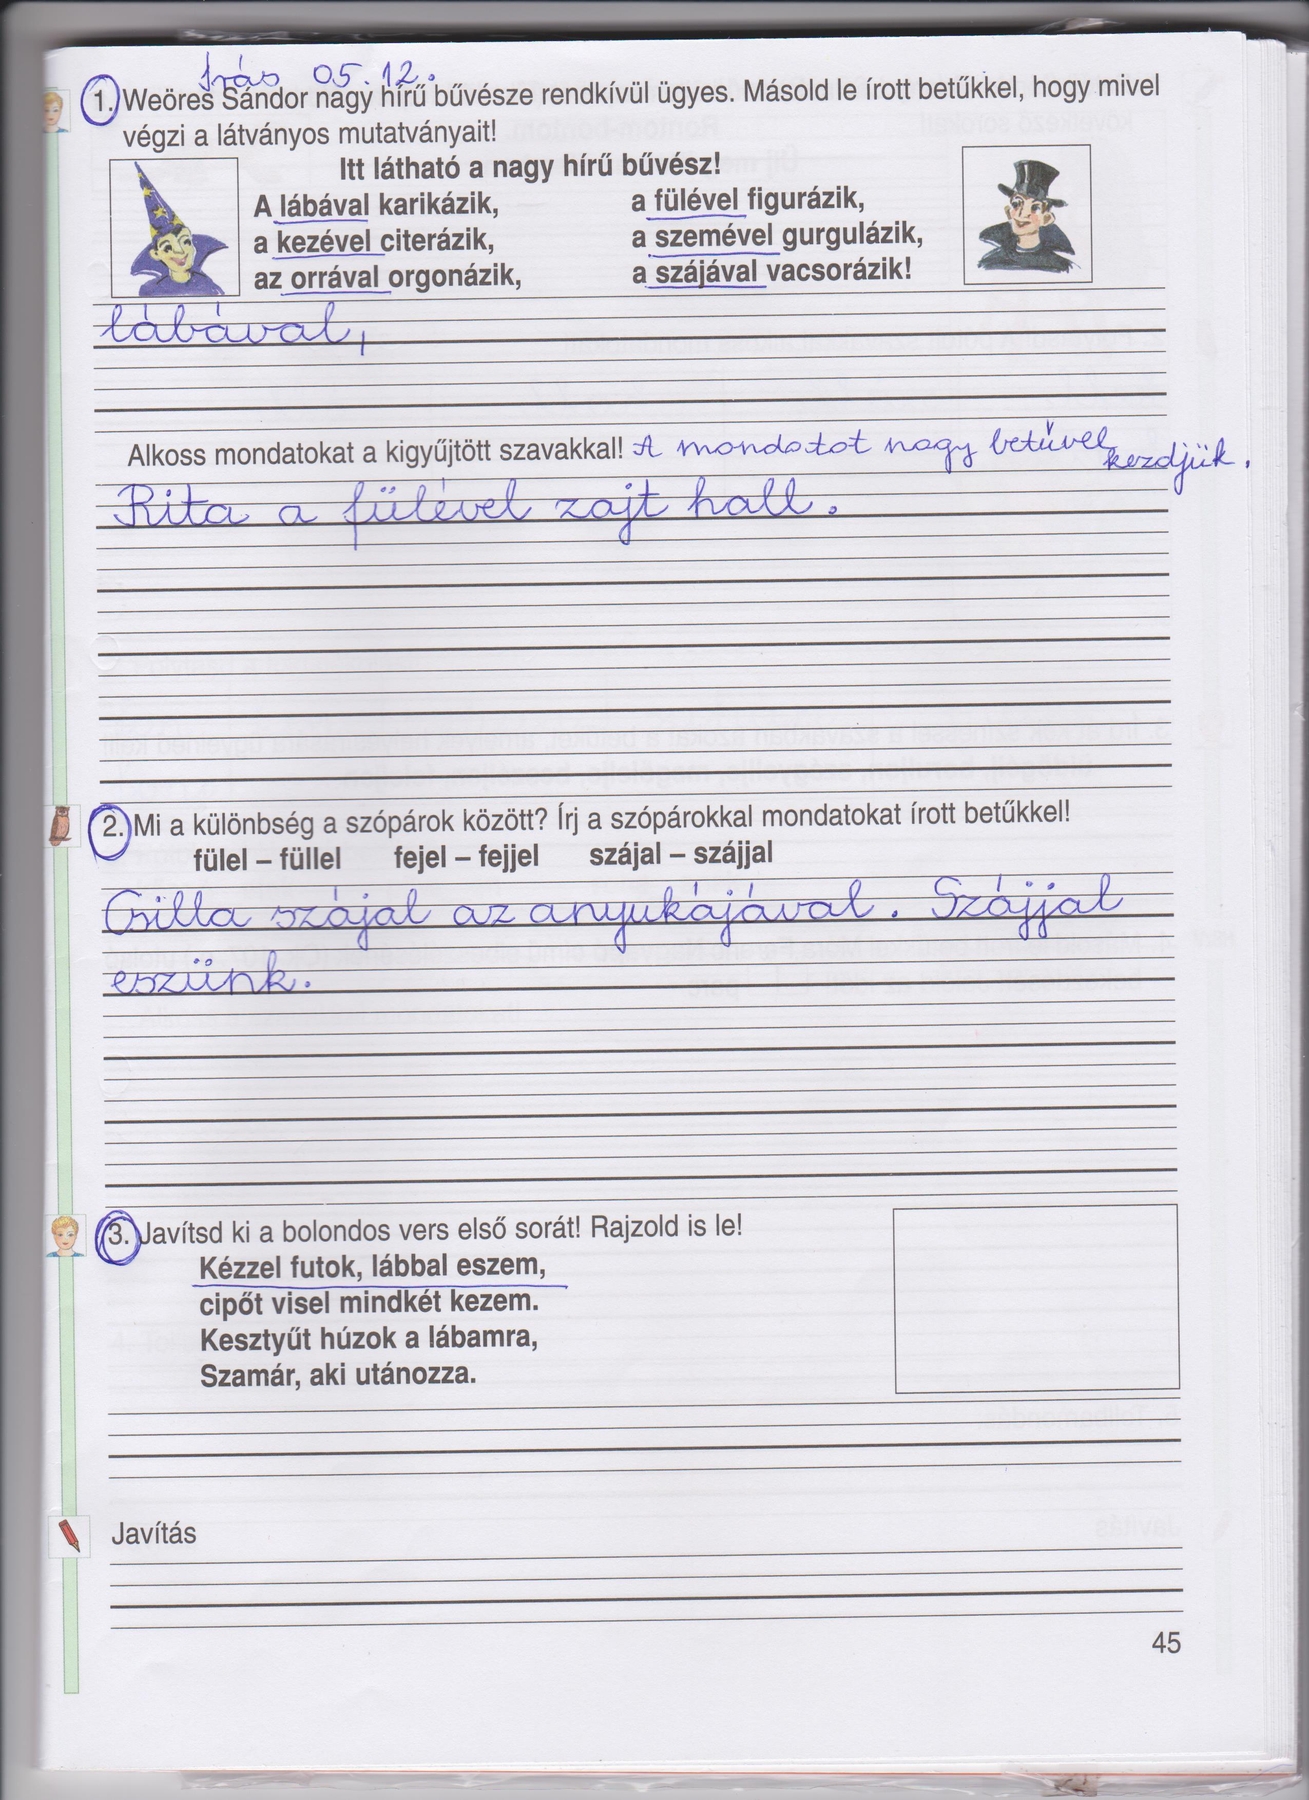 Írás 05.12.
1. Weöres Sándor nagy hírű bűvésze rendkívül ügyes. Másold le írott betűkkel, hogy mivel
végzi a látványos mutatványait!
Itt látható a nagy hírű bűvész!
A lábával karikázik, a fülével figurázik,
a kezével citerázik, a szemével gurgulázik,
az orrával orgonázik, a szájával vacsorázik!
lábával,
Alkoss mondatokat a kigyűjtött szavakkal! A mondatot nagy betűvel
kezdjük.
Rita a fülével zajt hall.
2. Mi a különbség a szópárok között? Írj a szópárokkal mondatokat írott betűkkel!
fülel – füllel fejel – fejjel szájal – szájjal
Csilla szájal az anyukájával. Szájjal
eszünk.
3. Javítsd ki a bolondos vers első sorát! Rajzold is le!
Kézzel futok, lábbal eszem,
cipőt visel mindkét kezem.
Kesztyűt húzok a lábamra,
Szamár, aki utánozza.
Javítás
45